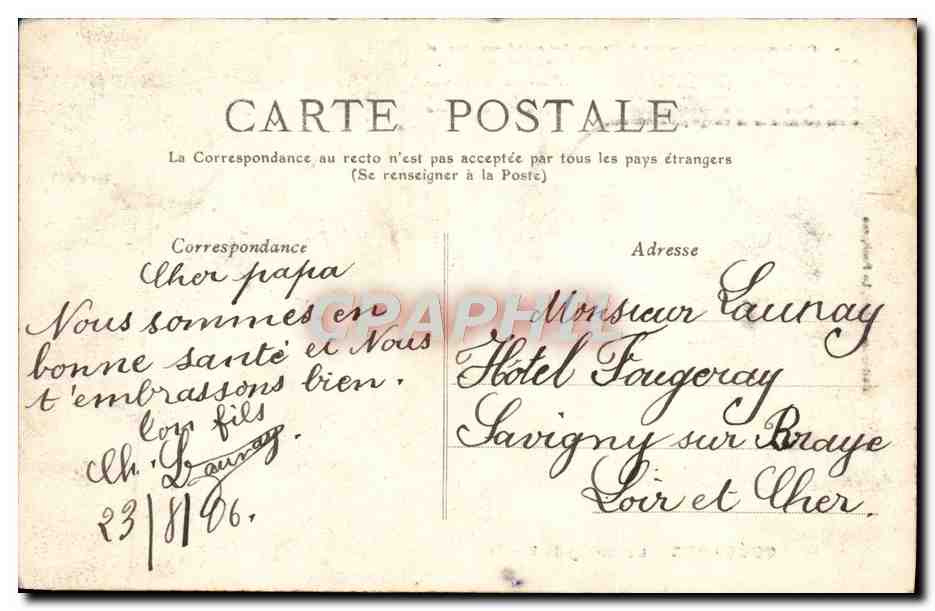 CARTE POSTALE
La Correspondance au recto n'est pas acceptée par tous les pays étrangers
(Se renseigner à la Poste)
Correspondance
Cher papa
Nous sommes en
bonne santé et Nous
t'embrassons bien.
Ton fils
Ch. Launay.
23/8/06.
Adresse
Monsieur Launay
Hôtel Fougeray
Savigny sur Braye
Loir et Cher.
CPAPHIL